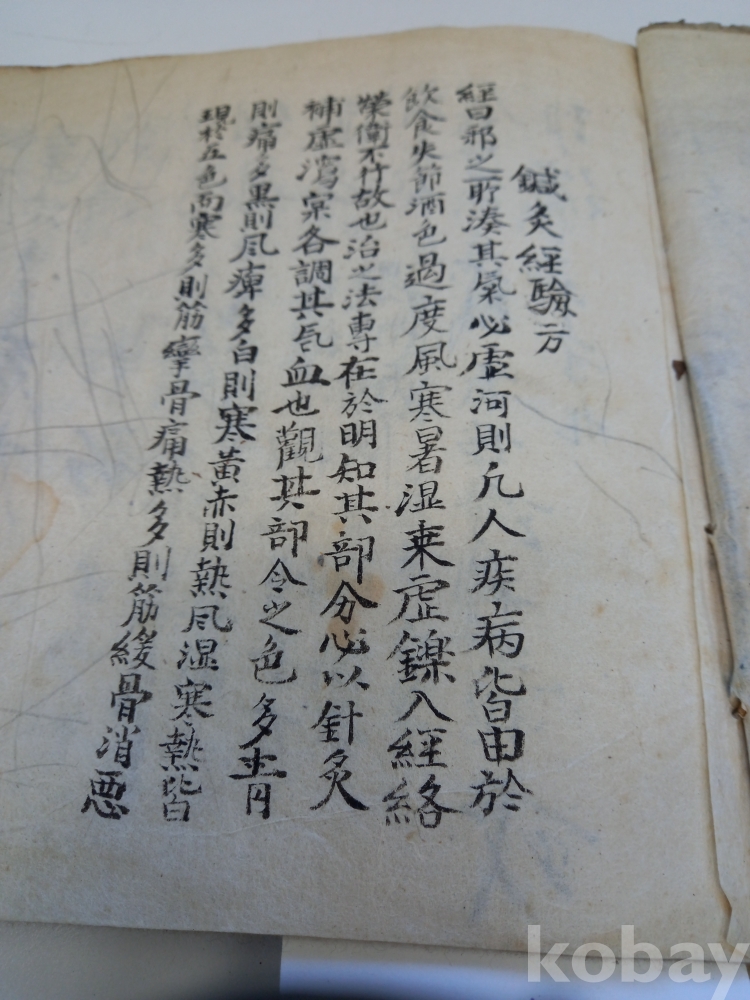 鍼灸經驗方
經曰邪之所湊其氣必虛河則凡人疾病皆由於
飮食失節酒色過度風寒暑湿乘虛鑠入經絡
榮衛不行故也治之法專在於明知其部分必以針灸
補虛瀉宲各調其气血也觀其部令之色多青
則痛多黑則风痺多白則寒黃赤則熱风湿寒熱皆
現於五色而寒多則筋攣骨痛熱多則筋緩骨消悪
kobay